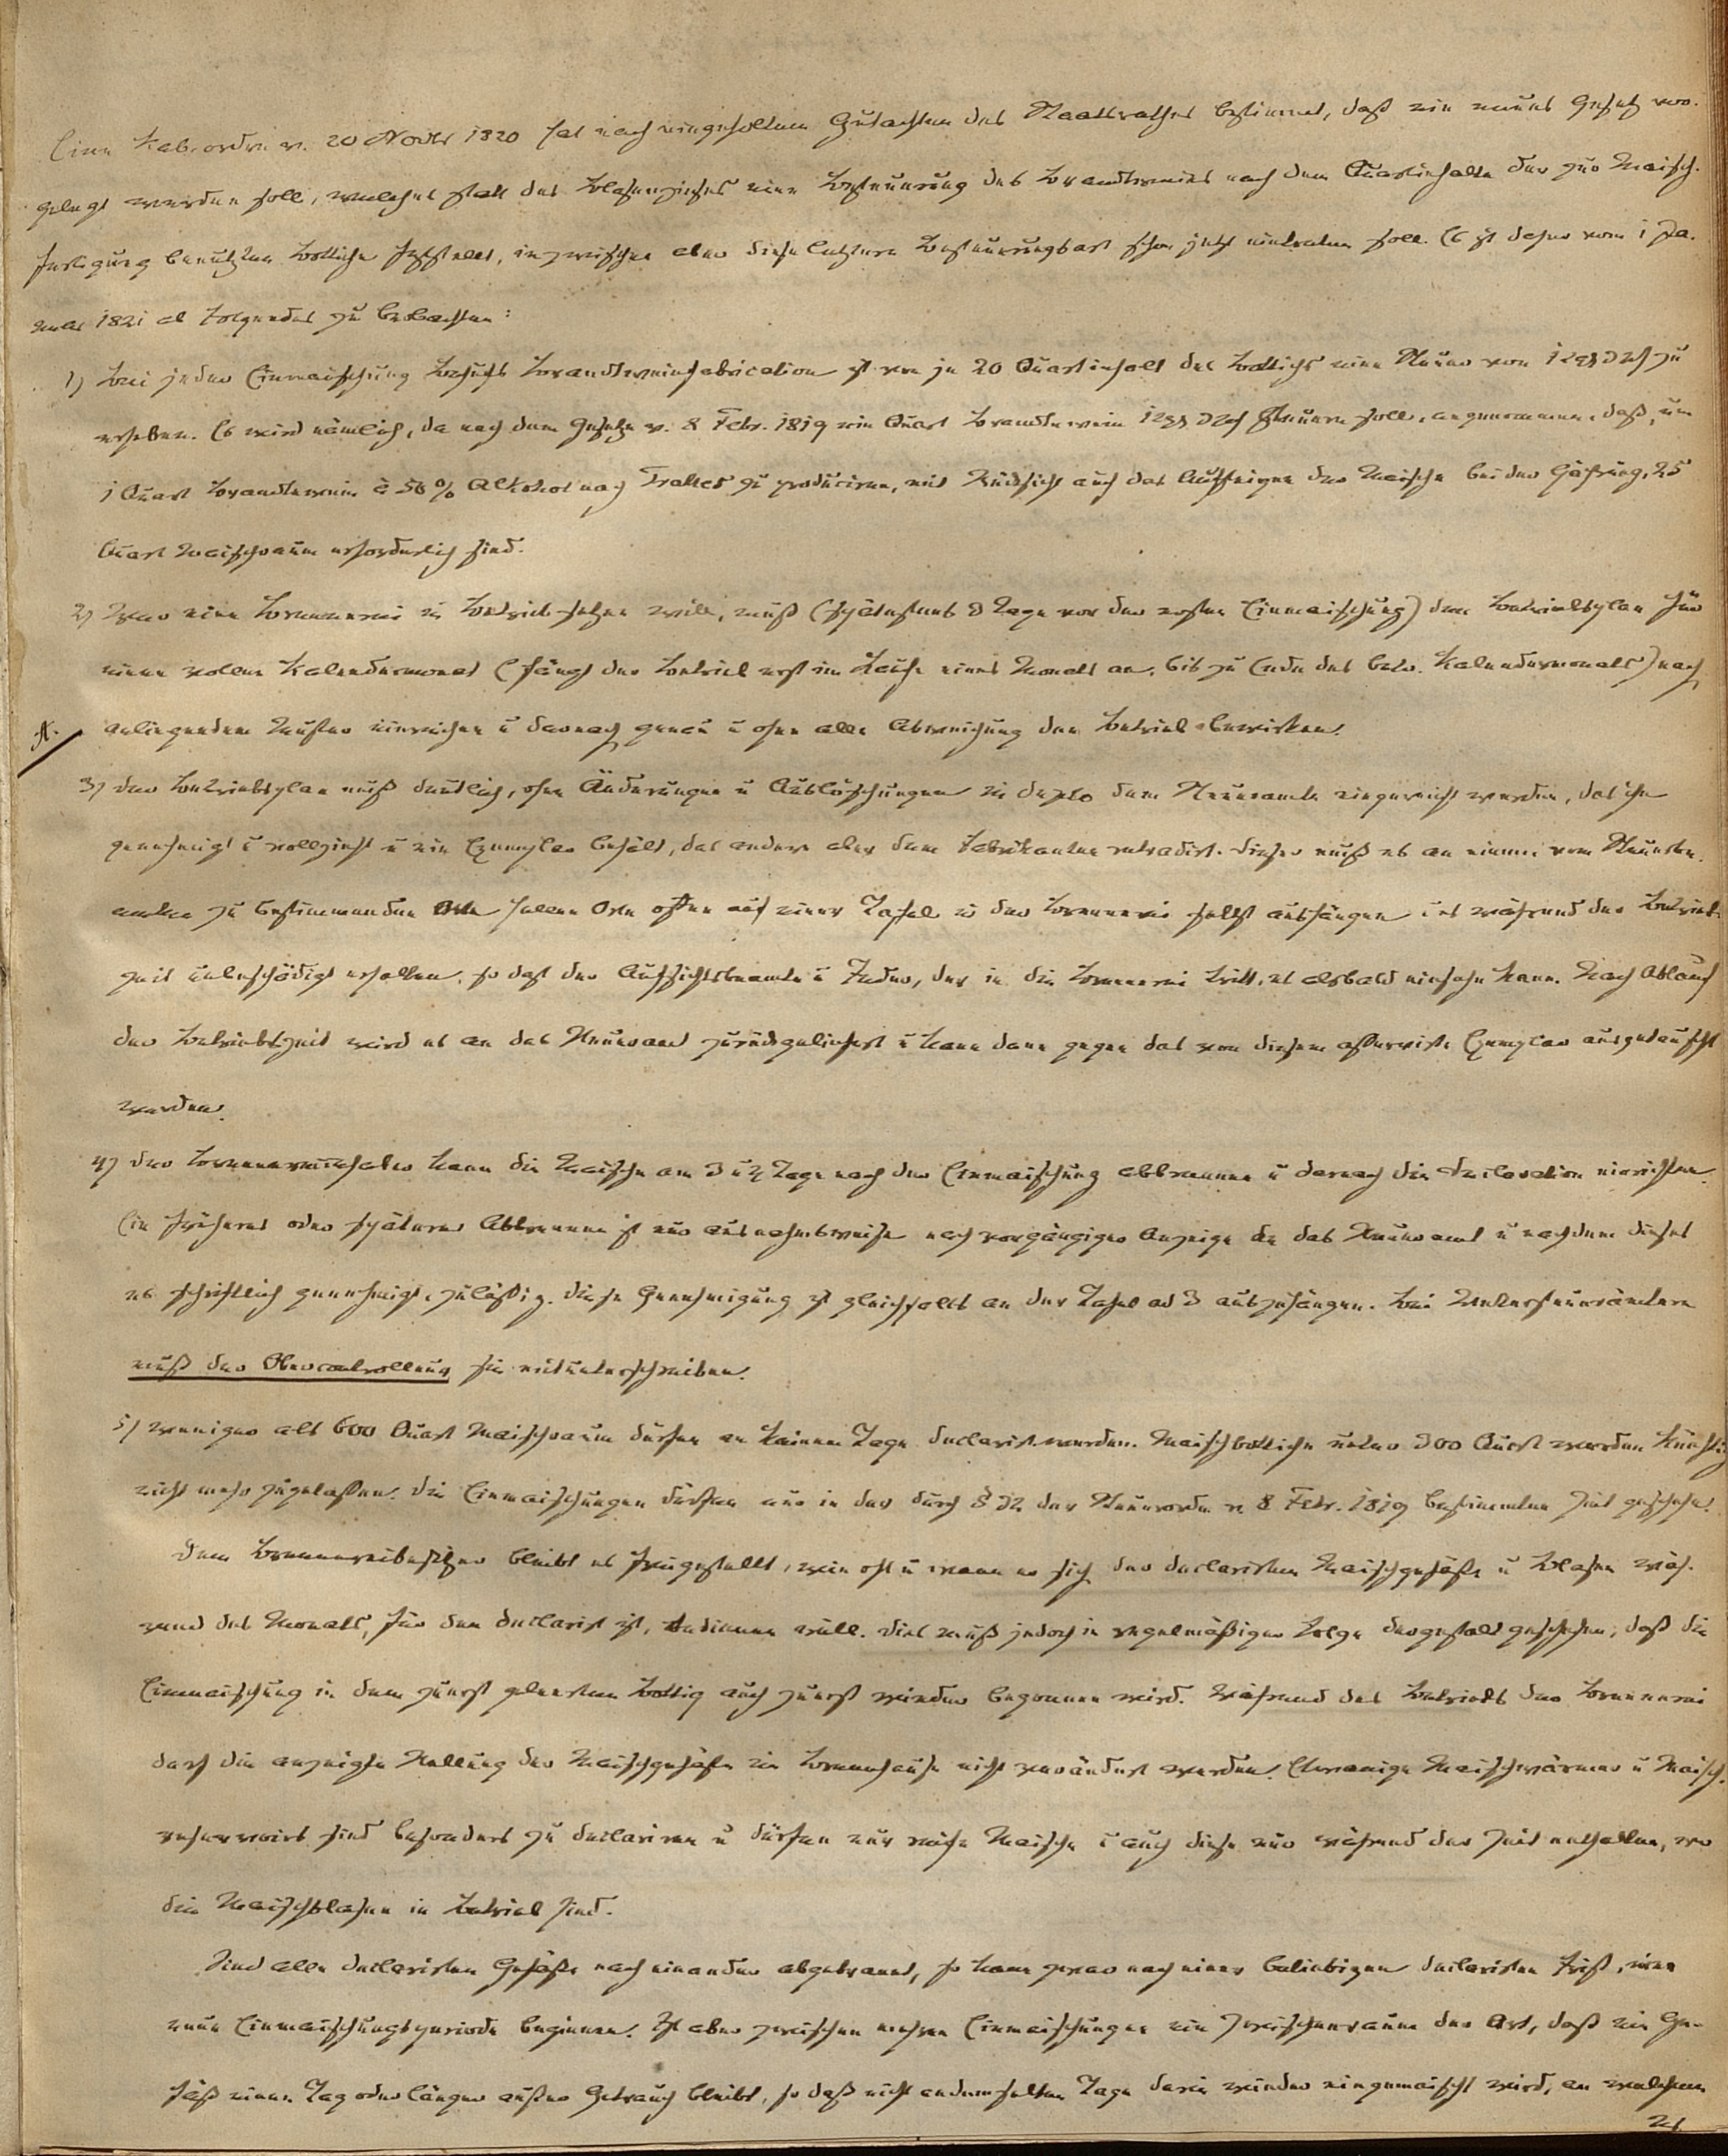 Eine Kab. ordre v. 20 Novbr 1820 hat nach eingeholtem Gutachten des Staatsrathes bestimmt, daß ein neues Gesetz vor-
gelegt werden soll, welches statt des Blasenzinses eine Besteuerung des Brandtweins nach dem Quartinhalte der zur Maisch-
fertigung benutzten Bottiche feststellt, inzwischen aber diese letztere Besteuerungsart schon jetzt eintreten soll. Es ist daher vom 1 Ja-
nuar 1821 ab Folgendes zu beobachten:
1) Bei jeder Einmaischung Behufs Brandtweinfabrication ist von je 20 Quartinhalt des Bottichs eine Steuer von 1 zu
erheben. Es wird nämlich, da nach dem Gesetze v. 8 Febr. 1819 ein Quart Brandtewein 1 steuern soll, angenommen, daß, um
1 Quart Brandtewein à 50 % Alkohol nach Tralles zu produciren, mit Rücksicht auf das Aufsteigen der Maische bei der Gährung, 25
Quart Maischraum erforderlich sind.
2) Wer eine Brennerei in Betrieb setzen will, muß (spätestens 8 Tage vor der ersten Einmaischung) den Betriebsplan für
einen vollen Kalendermonat (fängt der Betrieb erst im Laufe eines Monats an, bis zu Ende des betr. Kalendermonats) nach
A. anliegendem Muster einreichen u darnach genau u ohne alle Abweichung den Betrieb bewirken.
3) der Betriebsplan muß deutlich, ohne Änderungen u Auslöschungen in duplo dem Steueramte eingereicht werden, das ihn
genehmigt u vollzieht u ein Exemplar behält, das andere aber dem Fabrikanten retradirt. dieser muß es an einem vom Steuerbe-
amten zu bestimmenden hellen Orte offen auf einer Tafel in der Brennerei selbst aushängen u es während der Betriebs-
zeit unbeschädigt erhalten, so daß der Aufsichtsbeamte u Jeder, der in die Brennerei tritt, es alsbald einsehn kann. Nach Ablauf
der Betriebszeit wird es an das Steueramt zurückgeliefert u kann dann gegen das von diesem Exemplar ausgetauscht
werden.
4) der Brennereiinhaber kann die Maische am 3 u 4 Tage nach der Einmaischung abbrennen u darnach die Declaration einrichten.
Ein früheres oder späteres Abbrennen ist nur ausnahmsweise nach vorgängiger Anzeige an das Steueramt u nachdem dieses
es schriftlich genehmigt, zuläßig. diese Genehmigung ist gleichfalls an der Tafel ad 3 auszuhängen. Bei Untersteuerämtern
muß der Obercontrolleur sie mitunterschreiben.
5) weniger als 600 Quart Maischraum dürfen an keinem Tage declarirt werden. Maischbottiche unter 300 Quart werden künftig
nicht mehr zugelaßen. die Einmaischungen dürfen nur in der durch § 32 der Steuerordn. v 8 Febr. 1819 bestimmten Zeit geschehn.
dem Brennereibesitzer bleibt es freigestellt, wie oft u wann er sich der declarirten Maischgefäße u Blasen wäh-
rend des Monats, für den declarirt ist, bedienen will. dies muß jedoch in regelmäßiger Folge dergestalt geschehen, daß die
Einmaischung in dem zuerst geleerten Bottig auch zuerst wieder begonnen wird. Während des Betriebs der Brennerei
darf die angezeigte Stellung der Maischgefäße im Brennhause nicht verändert werden. Etwanige Maischwärmer u Maisch-
reservoirs sind besonders zu declariren u dürfen nur reife Maische u auch diese nur während der Zeit enthalten, wo
die Maischblasen in Betrieb sind.
Sind alle declarirten Gefäße nach einander abgebrannt, so kann zwar nach einer beliebigen declarirten Frist, eine
neue Einmaischungsperiode beginnen. Ist aber zwischen mehren Einmaischungen ein Zwischenraum der Art, daß ein Ge-
fäß einen Tag oder länger außer Gebrauch bleibt, so daß nicht an demselben Tage darin wieder eingemaischt wird, an welchem
es